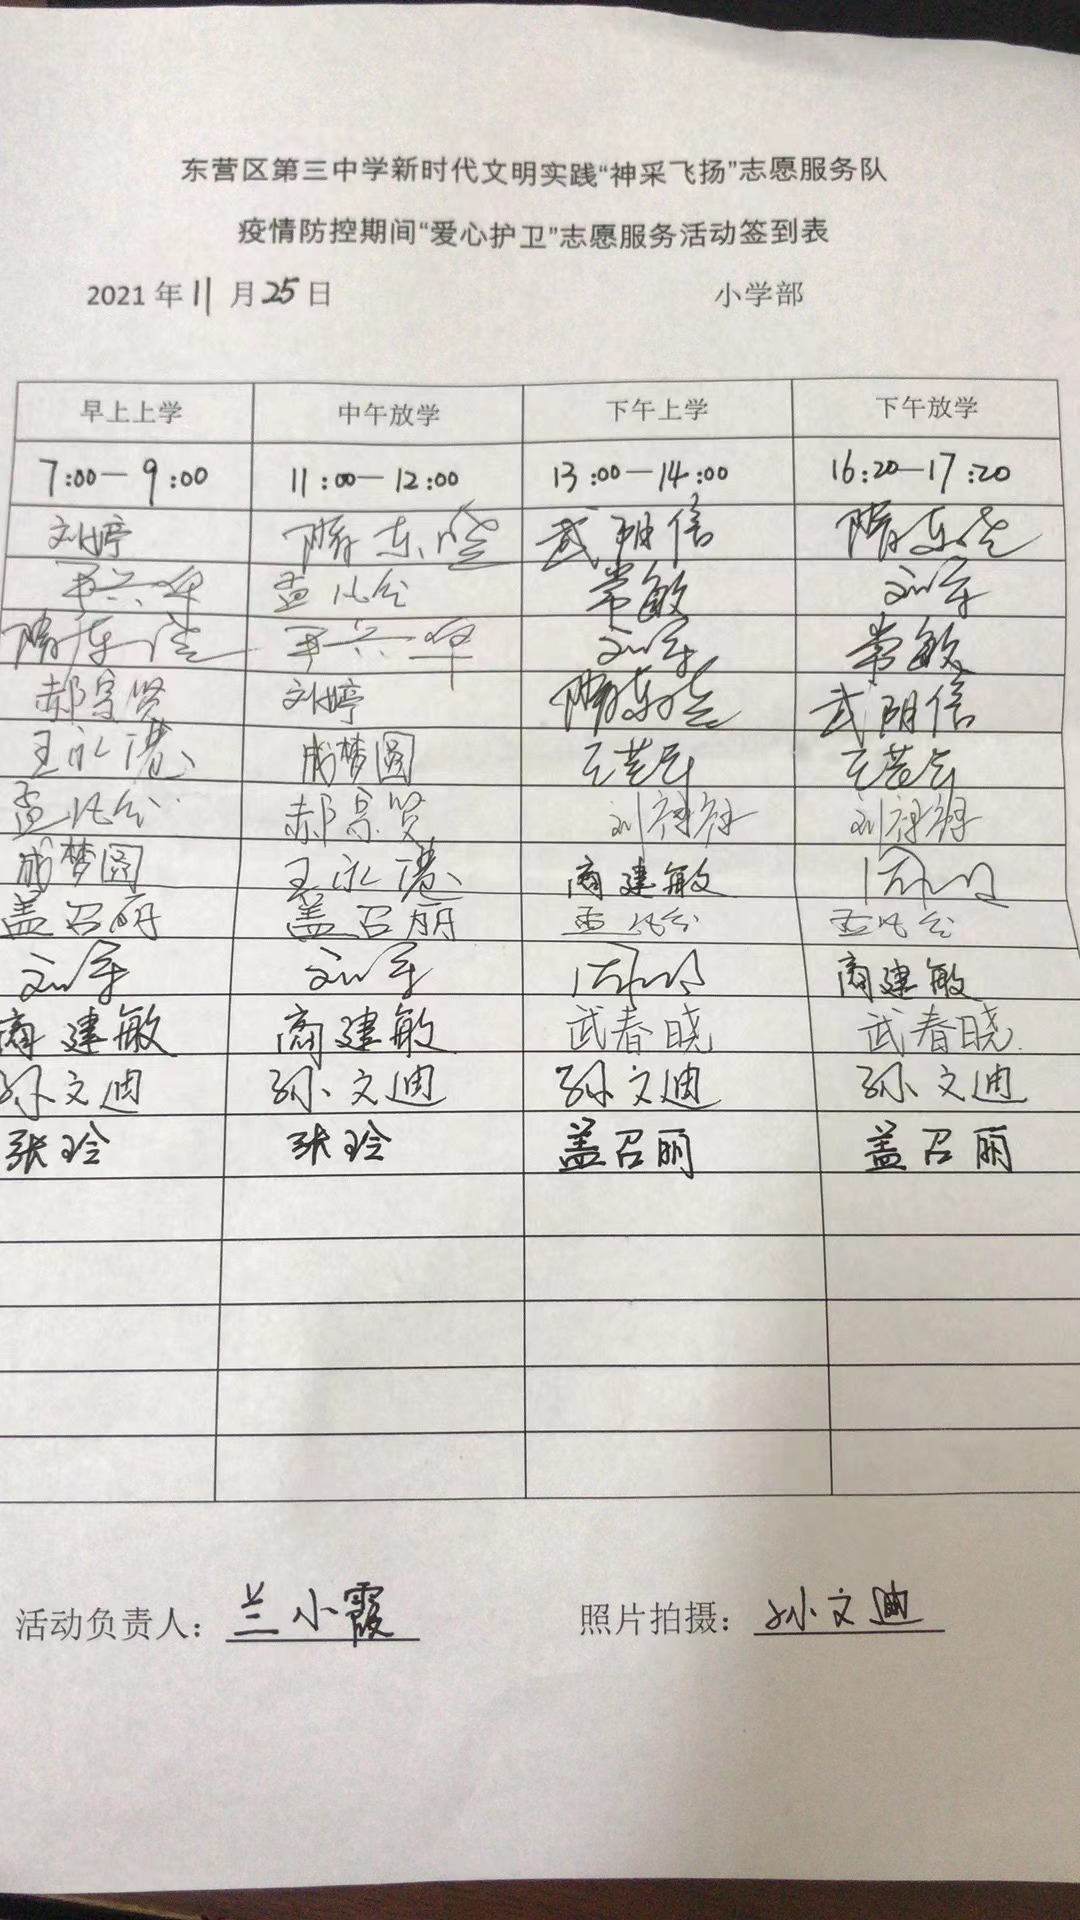 东营区第三中学新时代文明实践“神采飞扬”志愿服务队
疫情防控期间“爱心护卫”志愿服务活动签到表
2021 年 11 月 25 日 小学部
早上上学 中午放学 下午上学 下午放学
7:00—9:00 11:00—12:00 13:00—14:00 16:20—17:20
刘婷 隋东晓 武明信 隋东晓
孟凡台 常敏 刘军
隋东晓 刘军 常敏
郝景贤 刘婷 隋东晓 武明信
成梦圆
孟凡台 郝景贤 刘禄禄 刘禄禄
成梦圆 商建敏
盖召丽 盖召丽 孟凡台 孟凡台
刘军 刘军 商建敏
商建敏 商建敏 武春晓 武春晓
孙文迪 孙文迪 孙文迪 孙文迪
张玲 张玲 盖召丽 盖召丽
活动负责人： 兰小霞 照片拍摄： 孙文迪